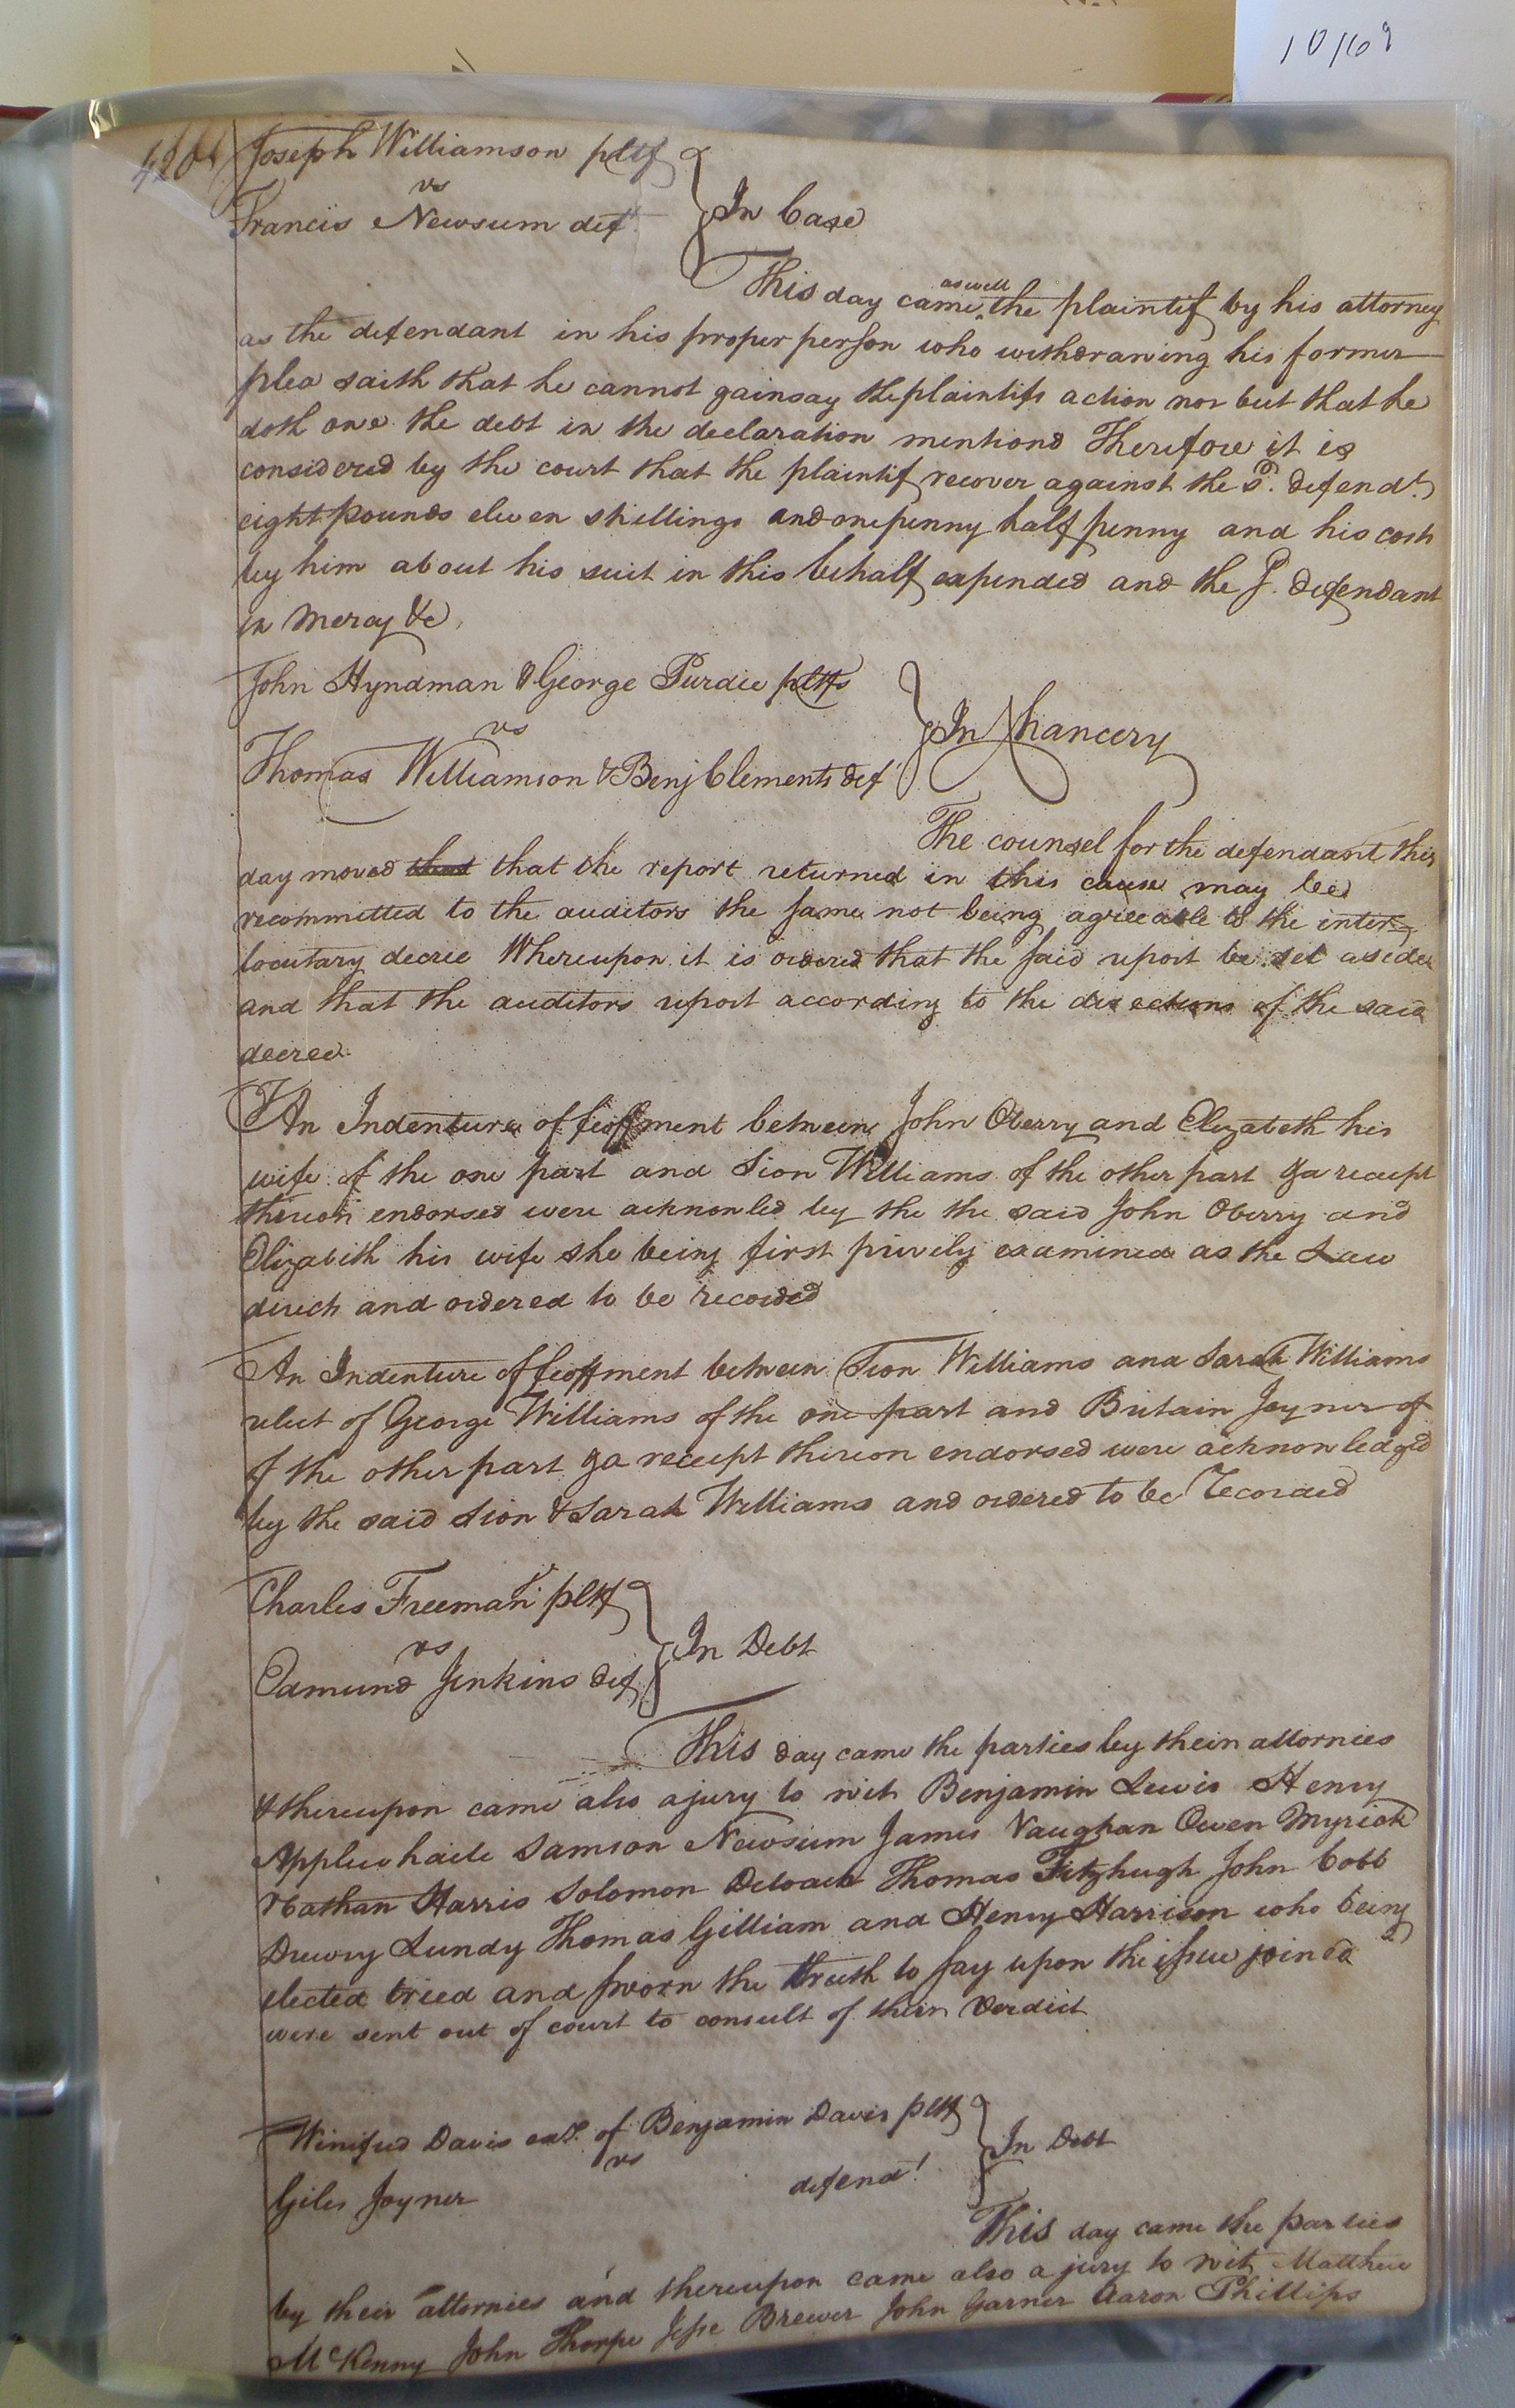 10/69
Joseph Williamson pltf
vs
Francis Newsum deft
In Case
This day came as well the plaintif by his attorney
as the defendant in his proper person who withdrawing his former
plea saith that he cannot gainsay the plaintifs action nor but that he
doth owe the debt in the declaration mentiond Therefore it is
considered by the court that the plaintif recover against the sd. defendt.
eight pounds eleven shillings and one penny half penny and his costs
by him about his suit in this behalf expended and the sd. defendant
in mercy &c.
John Hyndman & George Purdie pltfs
vs
Thomas Williamson & Benj Clements deft
In Chancery
The counsel for the defendant this
day moved that that the report returned in this cause may bee
recommitted to the auditors the same not being agreeable to the inter
locutary decree Whereupon it is ordered that the said report be set aside
and that the auditors report according to the directions of the said
decree
An Indenture of feoffment between John Oberry and Elizabeth his
wife of the one part and Sion Williams of the other part & a receipt
thereon endorsed were acknowled by the the said John Oberry and
Elizabeth his wife she being first privily examined as the Law
directs and ordered to be recorded
An Indenture of feoffment between Sion Williams and Sarah Williams
relict of George Williams of the one part and Britain Joyner of
of the other part & a receipt thereon endorsed were acknowledged
by the said Sion & Sarah Williams and ordered to be recorded
Charles Freeman pltf
vs
Edmund Jenkins def
In Debt
This day came the parties by their attornies
& thereupon came also a jury to wit Benjamin Lewis Henry
Applewhaite Samson Newsum James Vaughan Owen Myrick
Nathan Harris Solomon Deloach Thomas Fitzhugh John Cobb
Drewry Lundy Thomas Gilliam and Henry Harrison who being
elected tried and sworn the truth to say upon the issue joined
were sent out of court to consult of their verdict
Winifred Davis exx. of Benjamin Davis pltf
vs
Giles Joyner defendt.
In Debt
This day came the parties
by their attornies and thereupon came also a jury to wit Matthew
McKenny John Thorpe Jesse Brewer John Garner Aaron Phillips